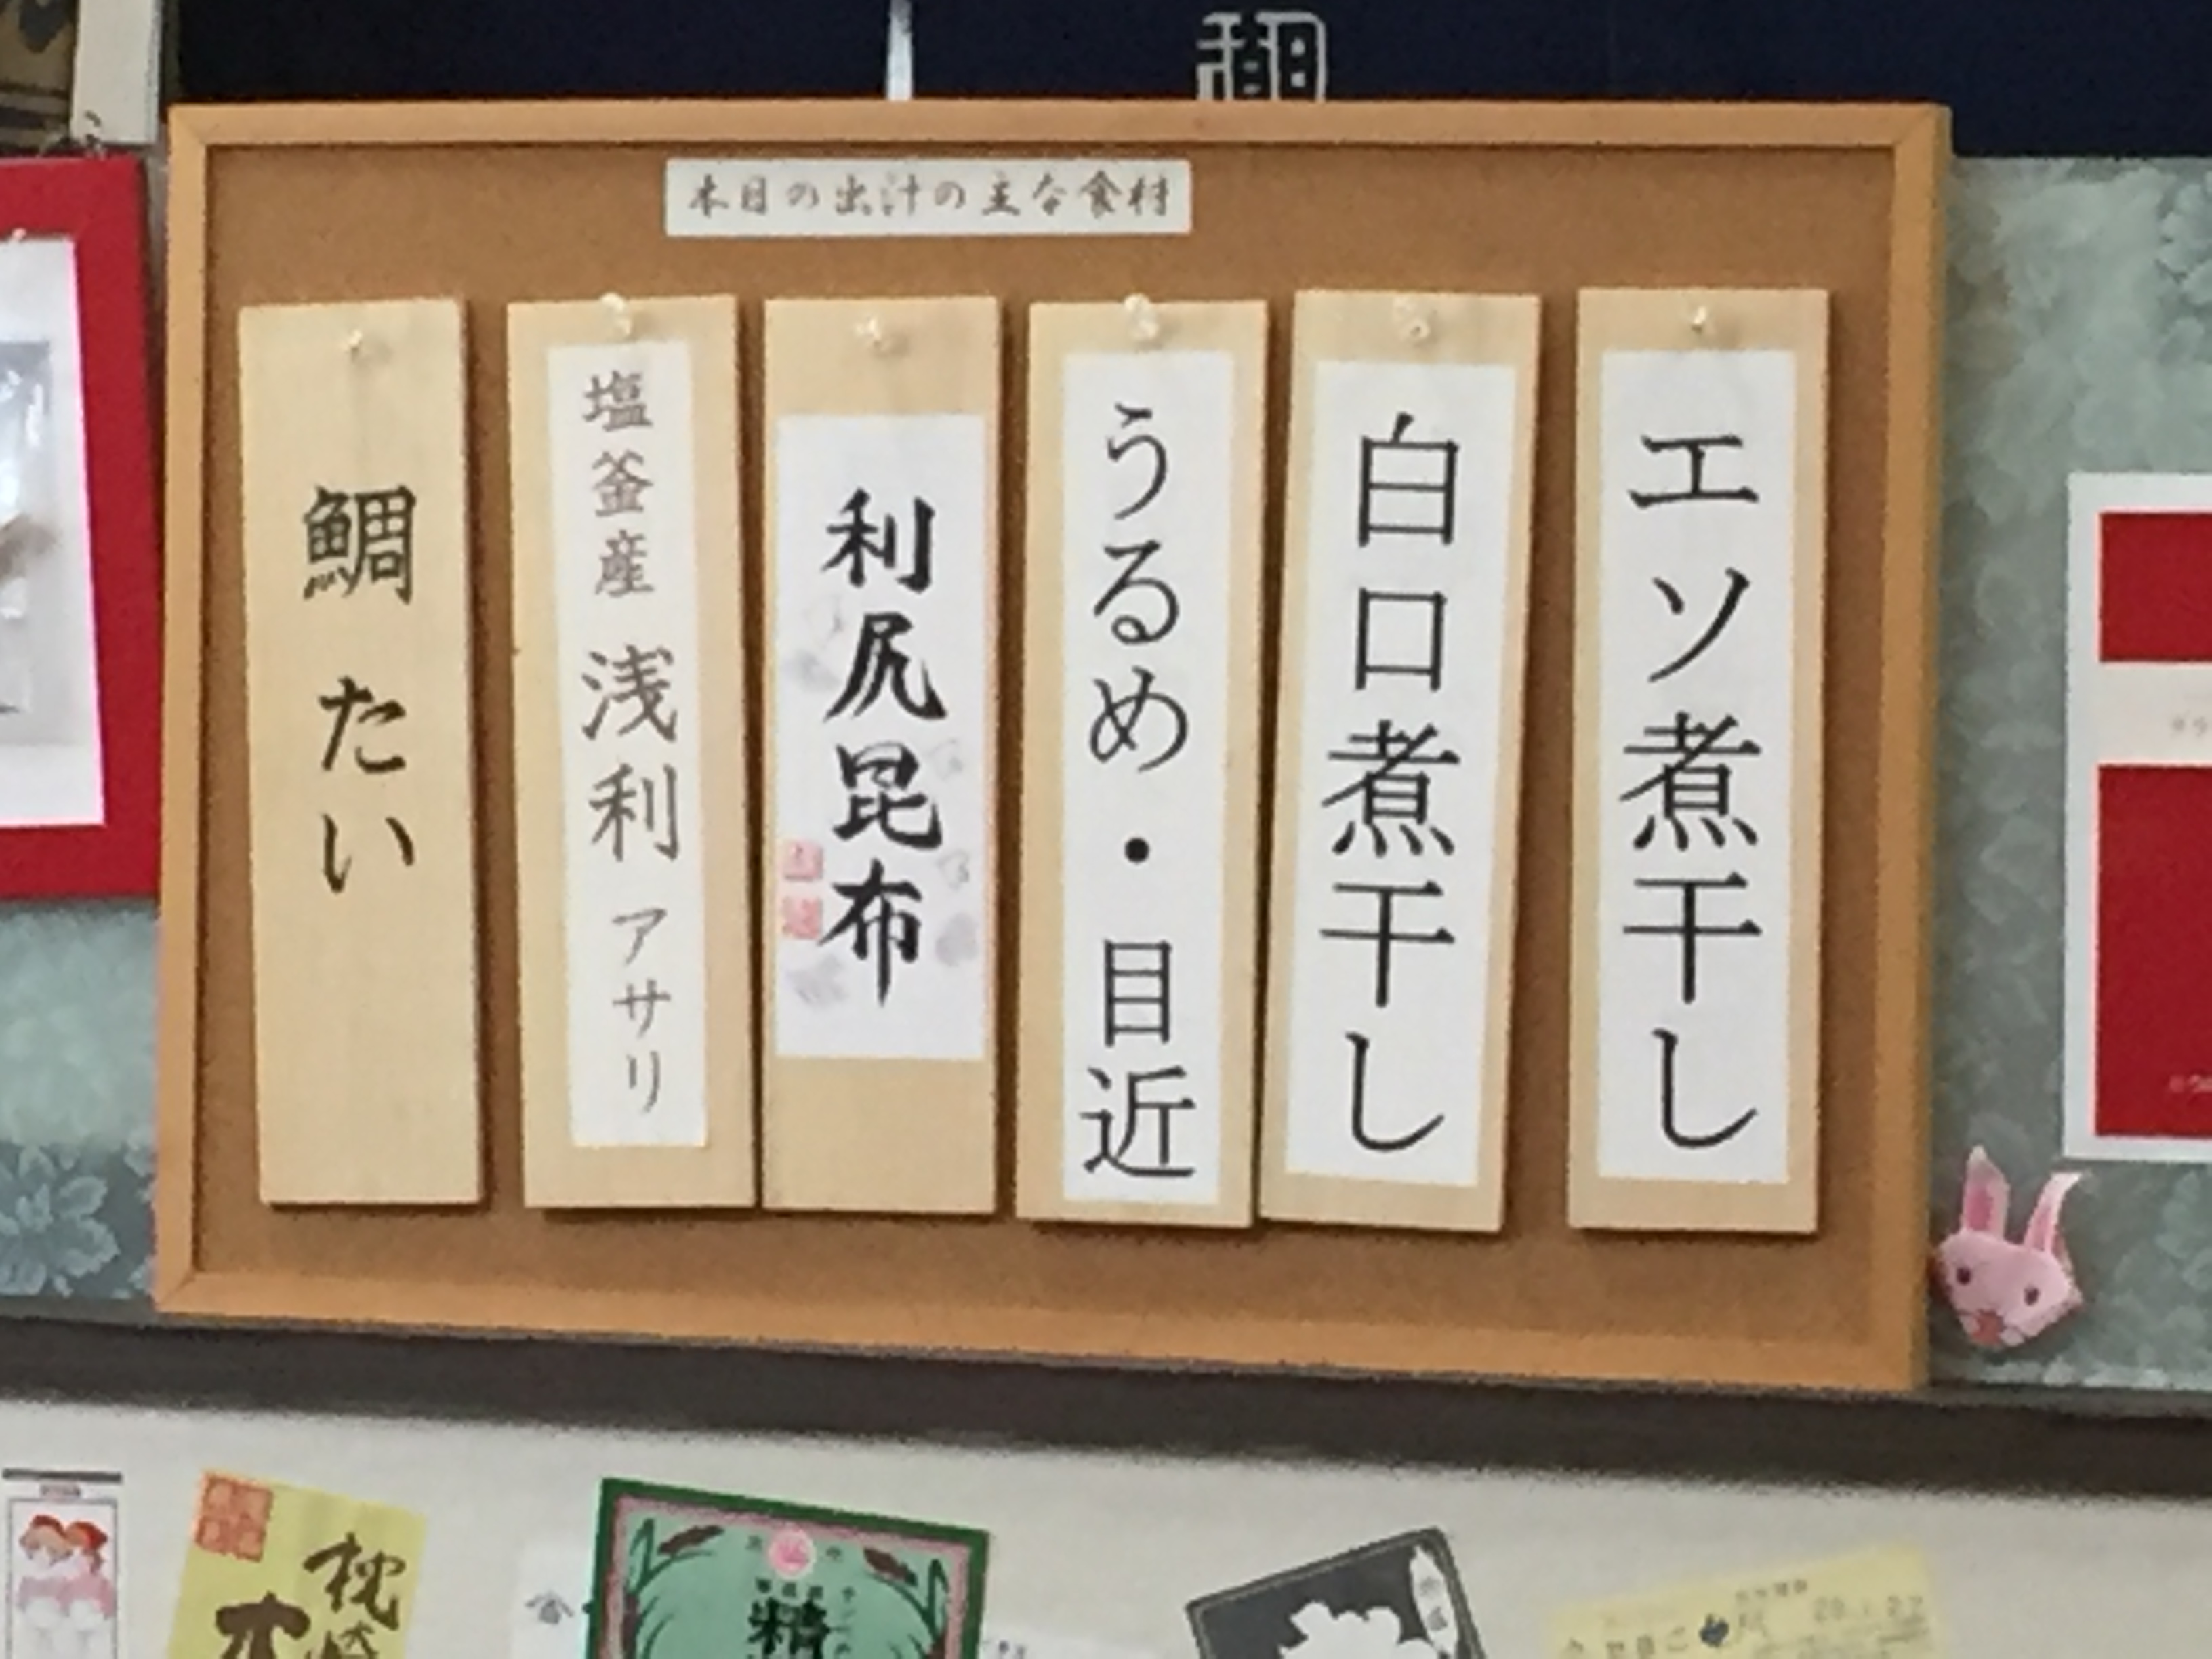 本日の出汁の主な食材
エソ煮干し
白口煮干し
うるめ・目近
利尻昆布
塩釜産 浅利 アサリ
鯛 たい
枕
本
精